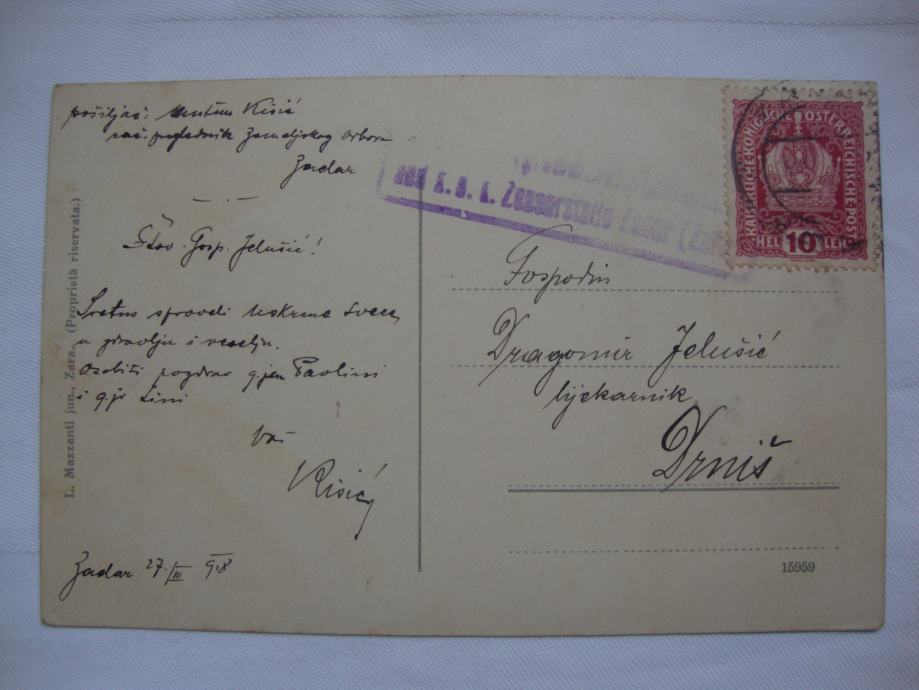 pošiljač: Kišić
Zemaljskog odbora
Zadar
Štov. Gosp. Jelušić!
Sretno sprovedi Uskrsne Svece,
u zdravlju i veselju.
Osobiti pozdrav gjen Pavlini
i gje
Vaš
Kisić
Zadar 27./III 918
L. Mazzanti jun., Zara. (Proprietà riservata.)
und k. u. k. Zensurstelle Zadar
KAISERLICHE KÖNIGLICHE ÖSTERREICHISCHE POST
HELLER
10
Gospodin
Dragomir Jelušić
ljekarnik
Drniš
15959